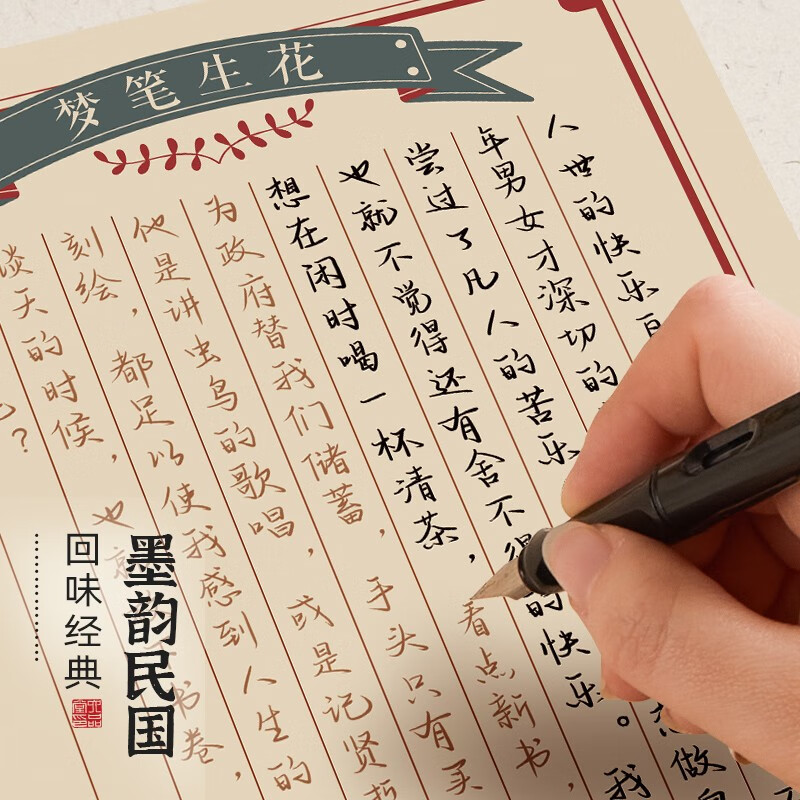 梦笔生花
人世的快乐
年男女才深切的
尝过了凡人的苦乐
做自
也就不觉得还有舍不得的快乐。我
想在闲时喝一杯清茶，看点新书，
为政府替我们储蓄，手头只有买
他是讲虫鸟的歌唱，或是记贤哲
刻绘，都足以使我感到人生的
谈天的时候，也就
书卷，
？
墨韵民国
回味经典